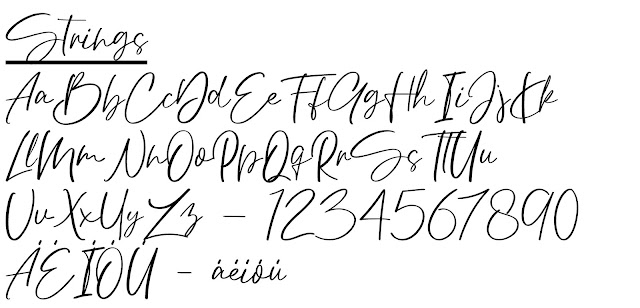 Strings
AaBbCcDdEeFfGgHhIiJjKk
LlMmNnOoPpQqRrSsTtUu
VvXxYyZz – 1234567890
ÄËÏÖÜ – áëíóü